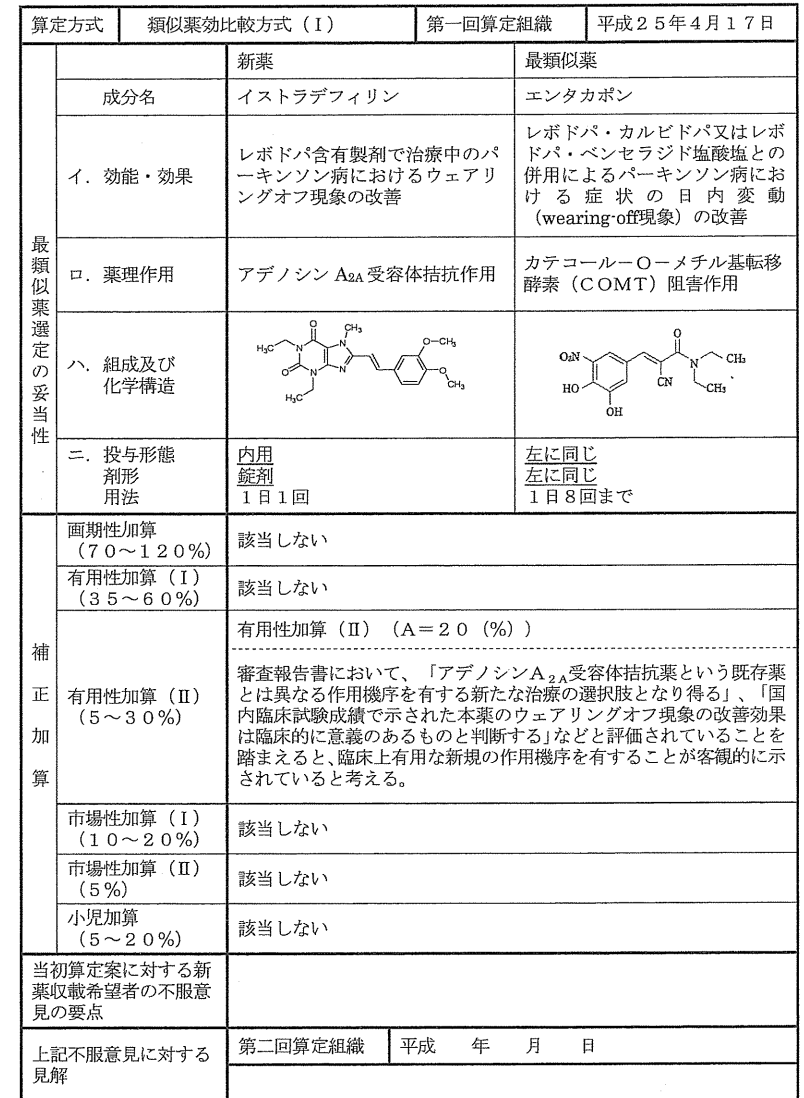 算定方式 類似薬効比較方式（Ⅰ） 第一回算定組織 平成２５年４月１７日
最類似薬選定の妥当性
新薬 最類似薬
成分名 イストラデフィリン エンタカポン
イ．効能・効果
レボドパ含有製剤で治療中のパ
ーキンソン病におけるウェアリ
ングオフ現象の改善
レボドパ・カルビドパ又はレボ
ドパ・ベンセラジド塩酸塩との
併用によるパーキンソン病にお
ける症状の日内変動
（wearing-off現象）の改善
ロ．薬理作用 アデノシン A2A 受容体拮抗作用
カテコール－Ｏ－メチル基転移
酵素（ＣＯＭＴ）阻害作用
ハ．組成及び
化学構造
O
CH₃
H₃C
N
N
O
N
N
CH₃
O
O
CH₃
H₃C
O
O₂N
N
CH₃
HO
CN
CH₃
OH
ニ．投与形態
剤形
用法
内用
錠剤
１日１回
左に同じ
左に同じ
１日８回まで
補正加算
画期性加算
（７０～１２０％）
該当しない
有用性加算（Ⅰ）
（３５～６０％）
該当しない
有用性加算（Ⅱ）
（５～３０％）
有用性加算（Ⅱ）（Ａ＝２０（％））
審査報告書において、「アデノシンＡ２Ａ受容体拮抗薬という既存薬
とは異なる作用機序を有する新たな治療の選択肢となり得る」、「国
内臨床試験成績で示された本薬のウェアリングオフ現象の改善効果
は臨床的に意義のあるものと判断する」などと評価されていることを
踏まえると、臨床上有用な新規の作用機序を有することが客観的に示
されていると考える。
市場性加算（Ⅰ）
（１０～２０％）
該当しない
市場性加算（Ⅱ）
（５％）
該当しない
小児加算
（５～２０％）
該当しない
当初算定案に対する新
薬収載希望者の不服意
見の要点
上記不服意見に対する
見解
第二回算定組織 平成 年 月 日